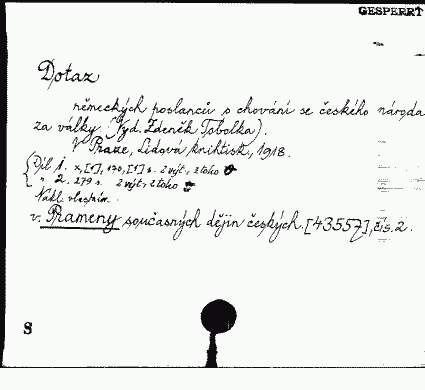 GESPERRT
Dotaz
německých poslanců o chování se českého národa
za války. (Vyd. Zdeněk Tobolka).
V Praze, Lidová knihtisk., 1918.
Díl 1. x, [1], 170, [1] s. 2 výt., z toho
" 2. 279 s. 2 výt., z toho
Nákl. vlastním.
v. Prameny současných dějin českých. [43557], čís. 2.
8